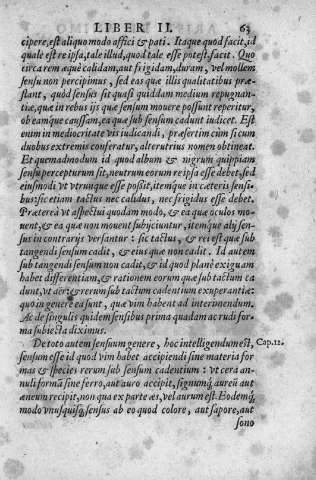 LIBER II. 63
cipere, est aliquo modo affici & pati. Itaque quod facit, id
quale est re ipsa, tale illud, quod tale esse potest, facit. Quo
circa rem æquè calidam, aut frigidam, duram, vel mollem
sensu non percipimus, sed eas quæ illis qualitatibus præ-
stant, quòd sensus sit quasi quiddam medium repugnan-
tiæ, quæ in rebus ijs quæ sensum mouere possunt reperitur,
ob eamque caussam, ea quæ sub sensum cadunt iudicet. Est
enim in mediocritate vis iudicandi, præsertim cùm si cum
duobus extremis conferatur, alterutrius nomen obtineat.
Et quemadmodum id quod album & nigrum quippiam
sensu percepturum sit, neutrum eorum re ipsa esse debet, sed
eiusmodi vt vtrunque esse possit, itémque in cæteris sensi-
bus: sic etiam tactus nec calidus, nec frigidus esse debet.
Præterea vt aspectus quodam modo, & ea quæ oculos mo-
uent, & ea quæ non mouent subijciuntur, itémque alij sen-
sus in contrarijs versantur: sic tactus, & rei est quæ sub
tangendi sensum cadit, & eius quæ non cadit. Id autem
sub tangendi sensum non cadit, & id quod planè exiguam
habet differentiam, & rationem eorum quæ sub tactum ca
dunt, vt aër: & rerum sub tactum cadentium exuperantiæ:
quo in genere ea sunt, quæ vim habent ad interimendum.
Ac de singulis quidem sensibus prima quadam ac rudi for-
ma subiecta diximus.
De toto autem sensuum genere, hoc intelligendum est, Cap. 12.
sensum esse id quod vim habet accipiendi sine materia for
mas & species rerum sub sensum cadentium: vt cera an-
nuli formā sine ferro, aut auro accipit, signumq; aureū aut
æneum recipit, non qua ex parte æs, vel aurum est. Eodemq;
modo vnusquisq; sensus ab eo quod colore, aut sapore, aut
sono